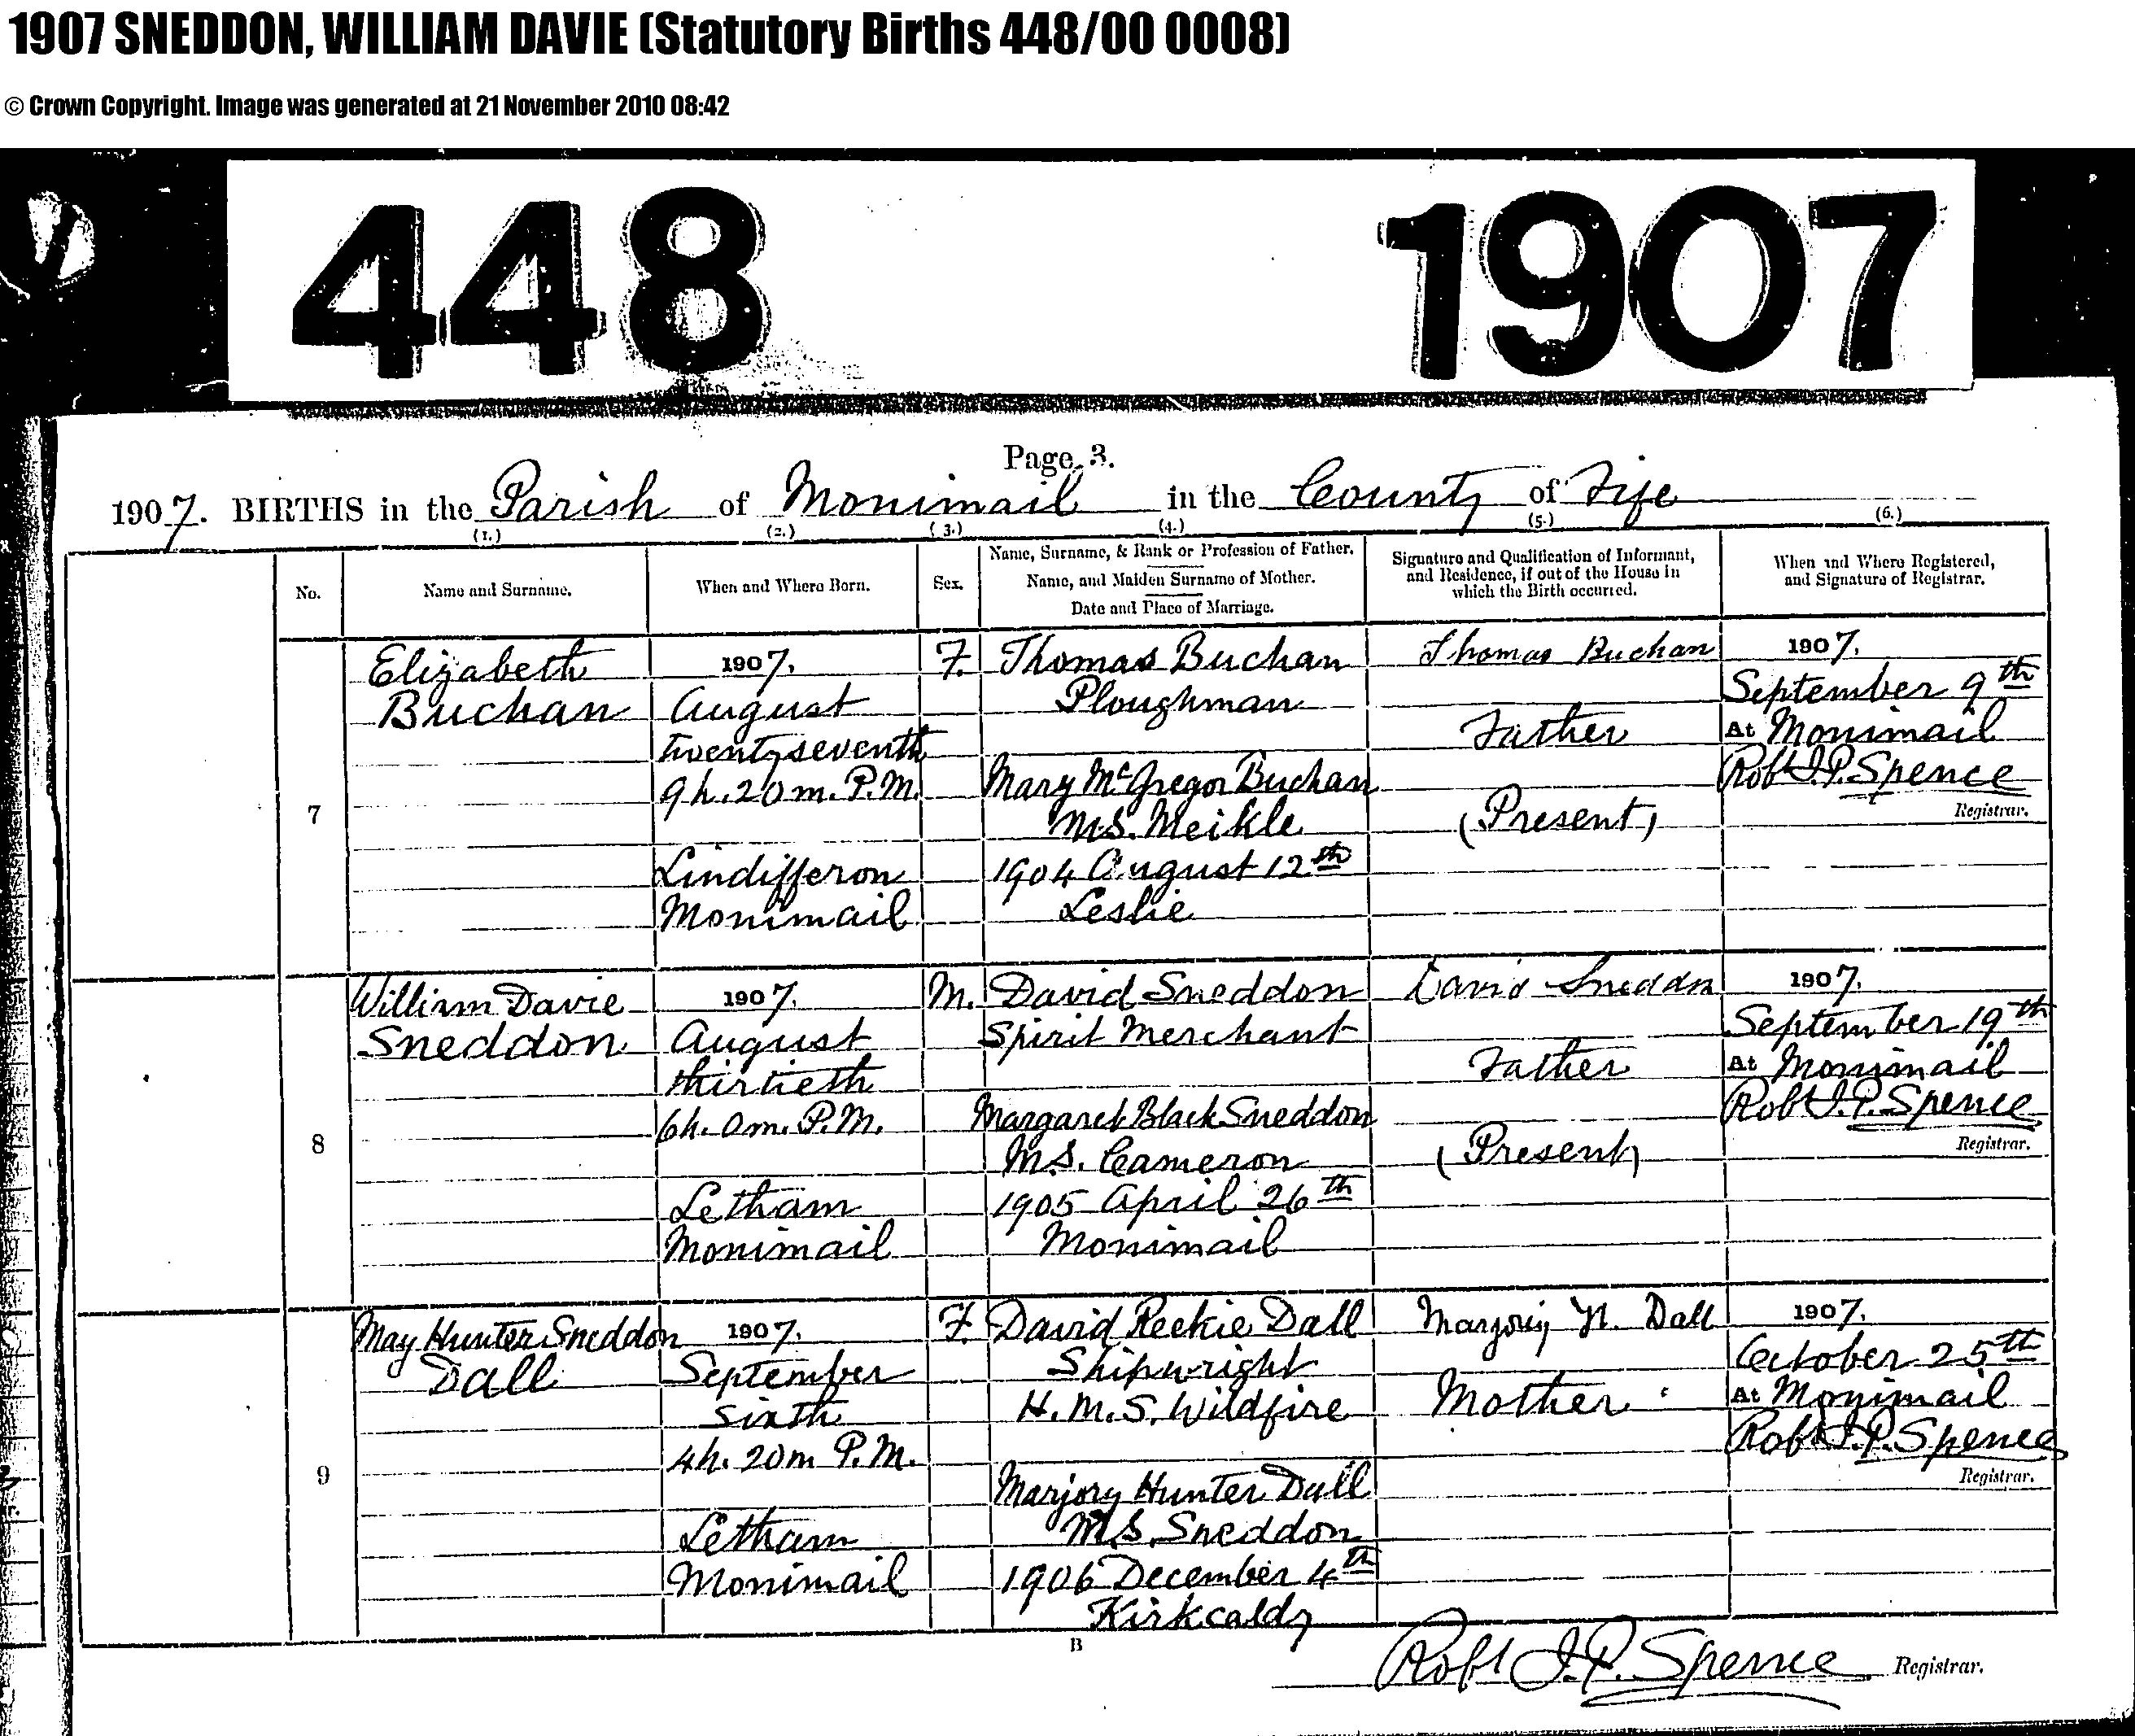 1907 SNEDDON, WILLIAM DAVIE (Statutory Births 448/00 0008)
© Crown Copyright. Image was generated at 21 November 2010 08:42
448 1907
Page 3.
1907. BIRTHS in the Parish of Monimail in the County of Fife
(1.) (2.) (3.) (4.) (5.) (6.)
No.
Name and Surname.
When and Where Born.
Sex.
Name, Surname, & Rank or Profession of Father.
Name, and Maiden Surname of Mother.
Date and Place of Marriage.
Signature and Qualification of Informant,
and Residence, if out of the House in
which the Birth occurred.
When and Where Registered,
and Signature of Registrar.
7
Elizabeth
Buchan
1907.
August
twentyseventh
9h. 20m. P.M.
Lindifferon
Monimail
F.
Thomas Buchan
Ploughman
Mary McGregor Buchan
M.S. Meikle
1904 August 12th
Leslie
Thomas Buchan
Father
(Present)
1907.
September 9th
At Monimail
Robt J.P. Spence
Registrar.
8
William Davie
Sneddon
1907.
August
thirtieth
6h. 0m. P.M.
Letham
Monimail
M.
David Sneddon
Spirit Merchant
Margaret Black Sneddon
M.S. Cameron
1905 April 26th
Monimail
David Sneddon
Father
(Present)
1907.
September 19th
At Monimail
Robt J.P. Spence
Registrar.
9
May Hunter Sneddon
Dall
1907.
September
sixth
4h. 20m P.M.
Letham
Monimail
F.
David Reekie Dall
Shipwright
H.M.S. Wildfire
Marjory Hunter Dall
M.S. Sneddon
1906 December 4th
Kirkcaldy
Marjory H. Dall
Mother
1907.
October 25th
At Monimail
Robt J.P. Spence
Registrar.
B
Robt J.P. Spence Registrar.